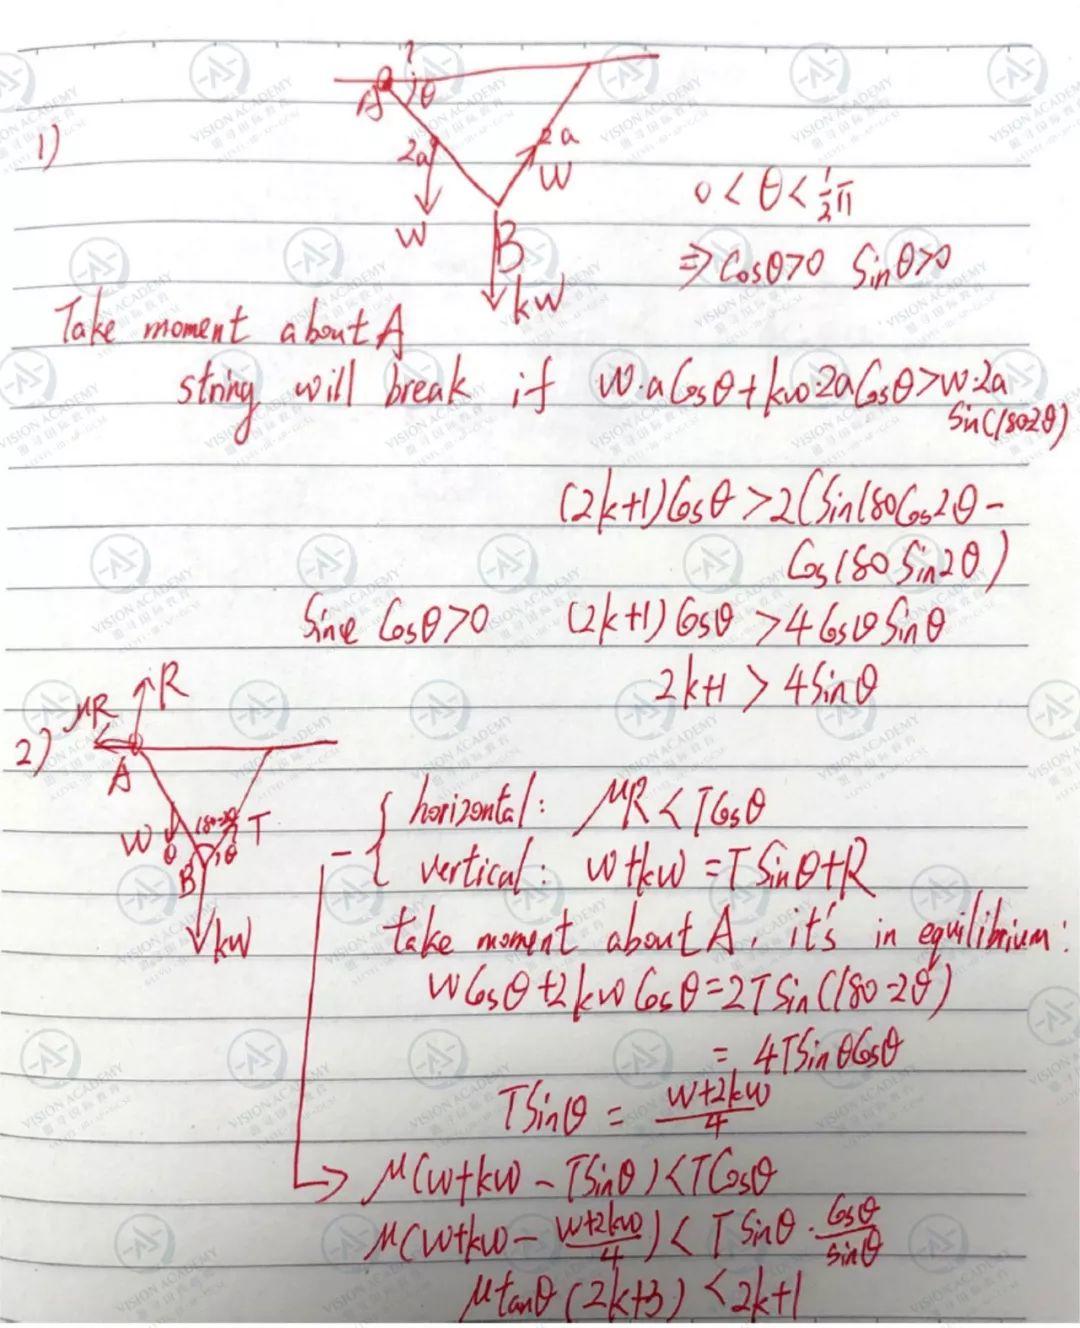 1)
A
θ
2a
2a
W
W
B
kw
0 < θ < 1/2 π
⇒ Cosθ>0 Sinθ>0
Take moment about A
string will break if W·aCosθ+kw·2aCosθ>W·2a
Sin(180-2θ)
(2k+1)Cosθ >2(Sin180Cos2θ -
Cos180 Sin2θ)
Since Cosθ>0 (2k+1)Cosθ >4CosθSinθ
2k+1 > 4Sinθ
2)
μR
R
A
W
180-2θ
T
θ
θ
B
kw
horizontal: μR < TCosθ
vertical: W+kw = TSinθ+R
take moment about A, it's in equilibrium:
WCosθ+2kwCosθ=2TSin(180-2θ)
= 4TSinθCosθ
TSinθ = W+2kw/4
μ(W+kw - TSinθ)<TCosθ
μ(W+kw - W+2kw/4) < TSinθ · Cosθ/Sinθ
μtanθ(2k+3) < 2k+1
VISION ACADEMY